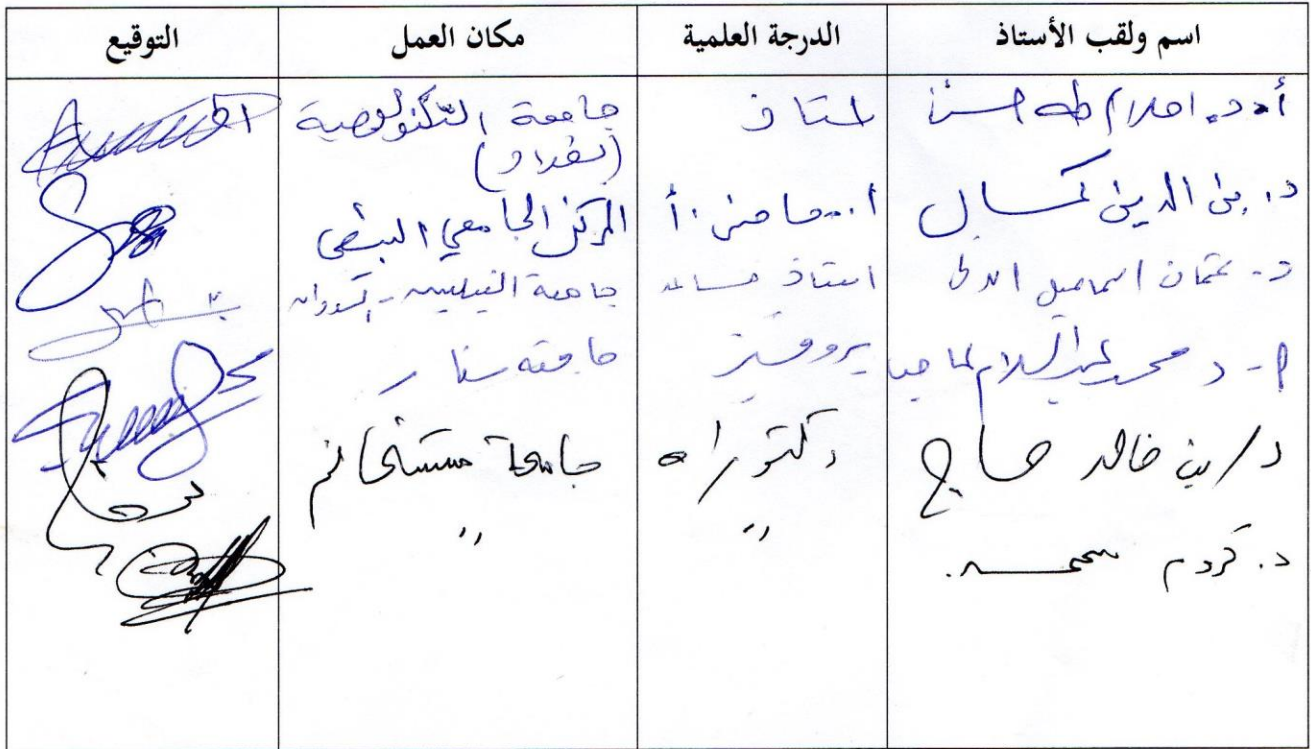 اسم ولقب الأستاذ الدرجة العلمية مكان العمل التوقيع
أ.د. احلام طه حسن استاذ جامعة التكنولوجية
(بغداد)
د. بن الدين كمال أ. محاضر أ المركز الجامعي البيض
د- عثمان اسماعيل استاذ مساعد جامعة النيلين - السودان
أ- د محمد عبد السلام بروفسير جامعة سنار
د/ بن خالد حاج دكتوراه جامعة مستغانم
د. كروم محمد " "